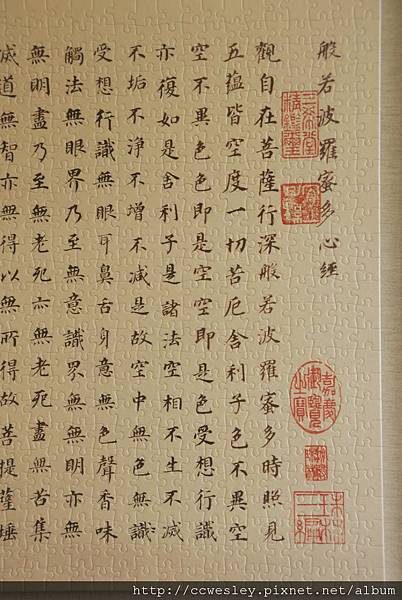 般若波羅蜜多心經
三希堂精鑑璽
宜子孫
嘉慶御覽之寶
觀自在菩薩行深般若波羅蜜多時照見
五蘊皆空度一切苦厄舍利子色不異空
空不異色色即是空空即是色受想行識
亦復如是舍利子是諸法空相不生不滅
不垢不淨不增不減是故空中無色無識
受想行識無眼耳鼻舌身意無色聲香味
觸法無眼界乃至無意識界無無明亦無
無明盡乃至無老死亦無老死盡無苦集
滅道無智亦無得以無所得故菩提薩埵
http://ccwesley.pixnet.net/album